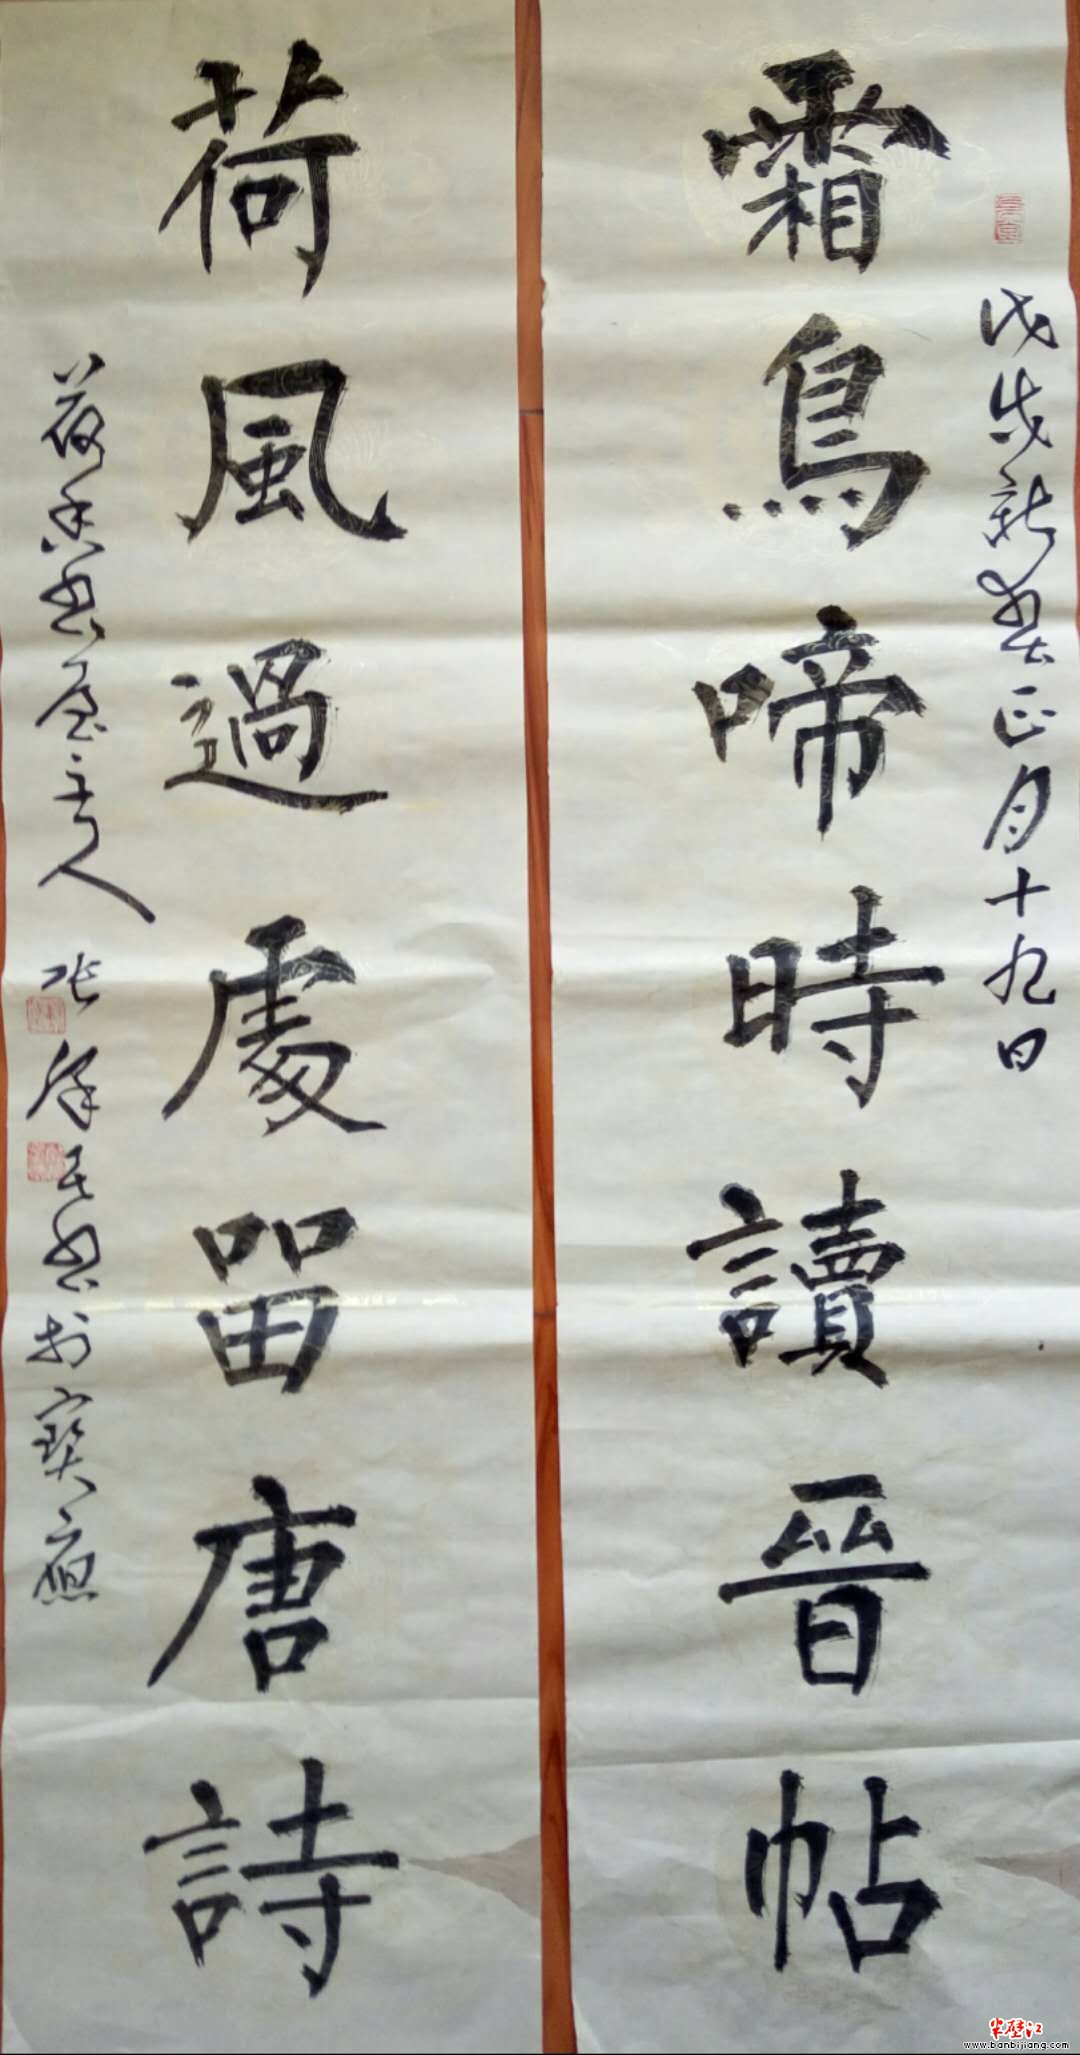 戊戌新春正月十九日
霜鳥啼時讀晉帖
荷風過處留唐詩
荷香書屋主人
書於寶應
半壁江
www.banbijiang.com